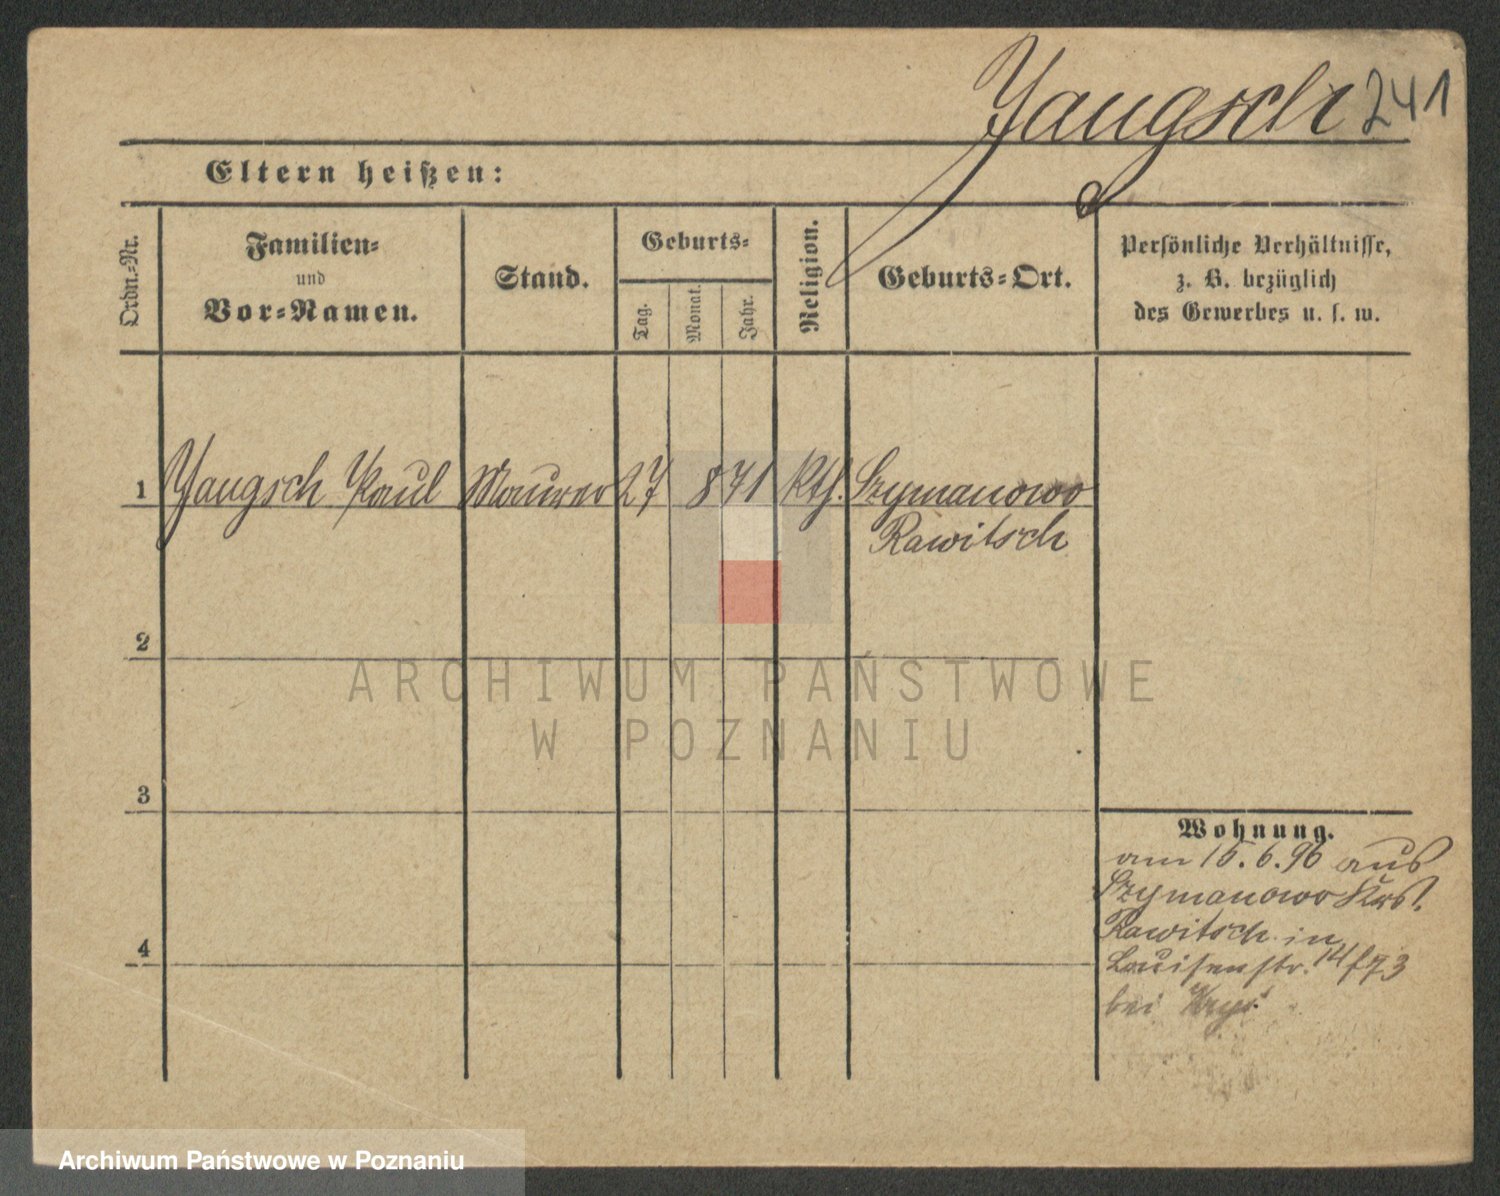 Jaugsch 241
Eltern heißen:
Ordn.-Nr.
Familien-
und
Vor-Namen.
Stand.
Geburts-
Tag.
Monat.
Jahr.
Religion.
Geburts-Ort.
Persönliche Verhältnisse,
z. B. bezüglich
des Gewerbes u. s. w.
1 Jaugsch Paul Maurer 27 8 71 kth. Szymanowo
Rawitsch
2
3
4
Wohnung.
am 15.6.96 aus
Szymanowo Krs.
Rawitsch in
Louisenstr. 14/f73
bei
ARCHIWUM PAŃSTWOWE
W POZNANIU
Archiwum Państwowe w Poznaniu